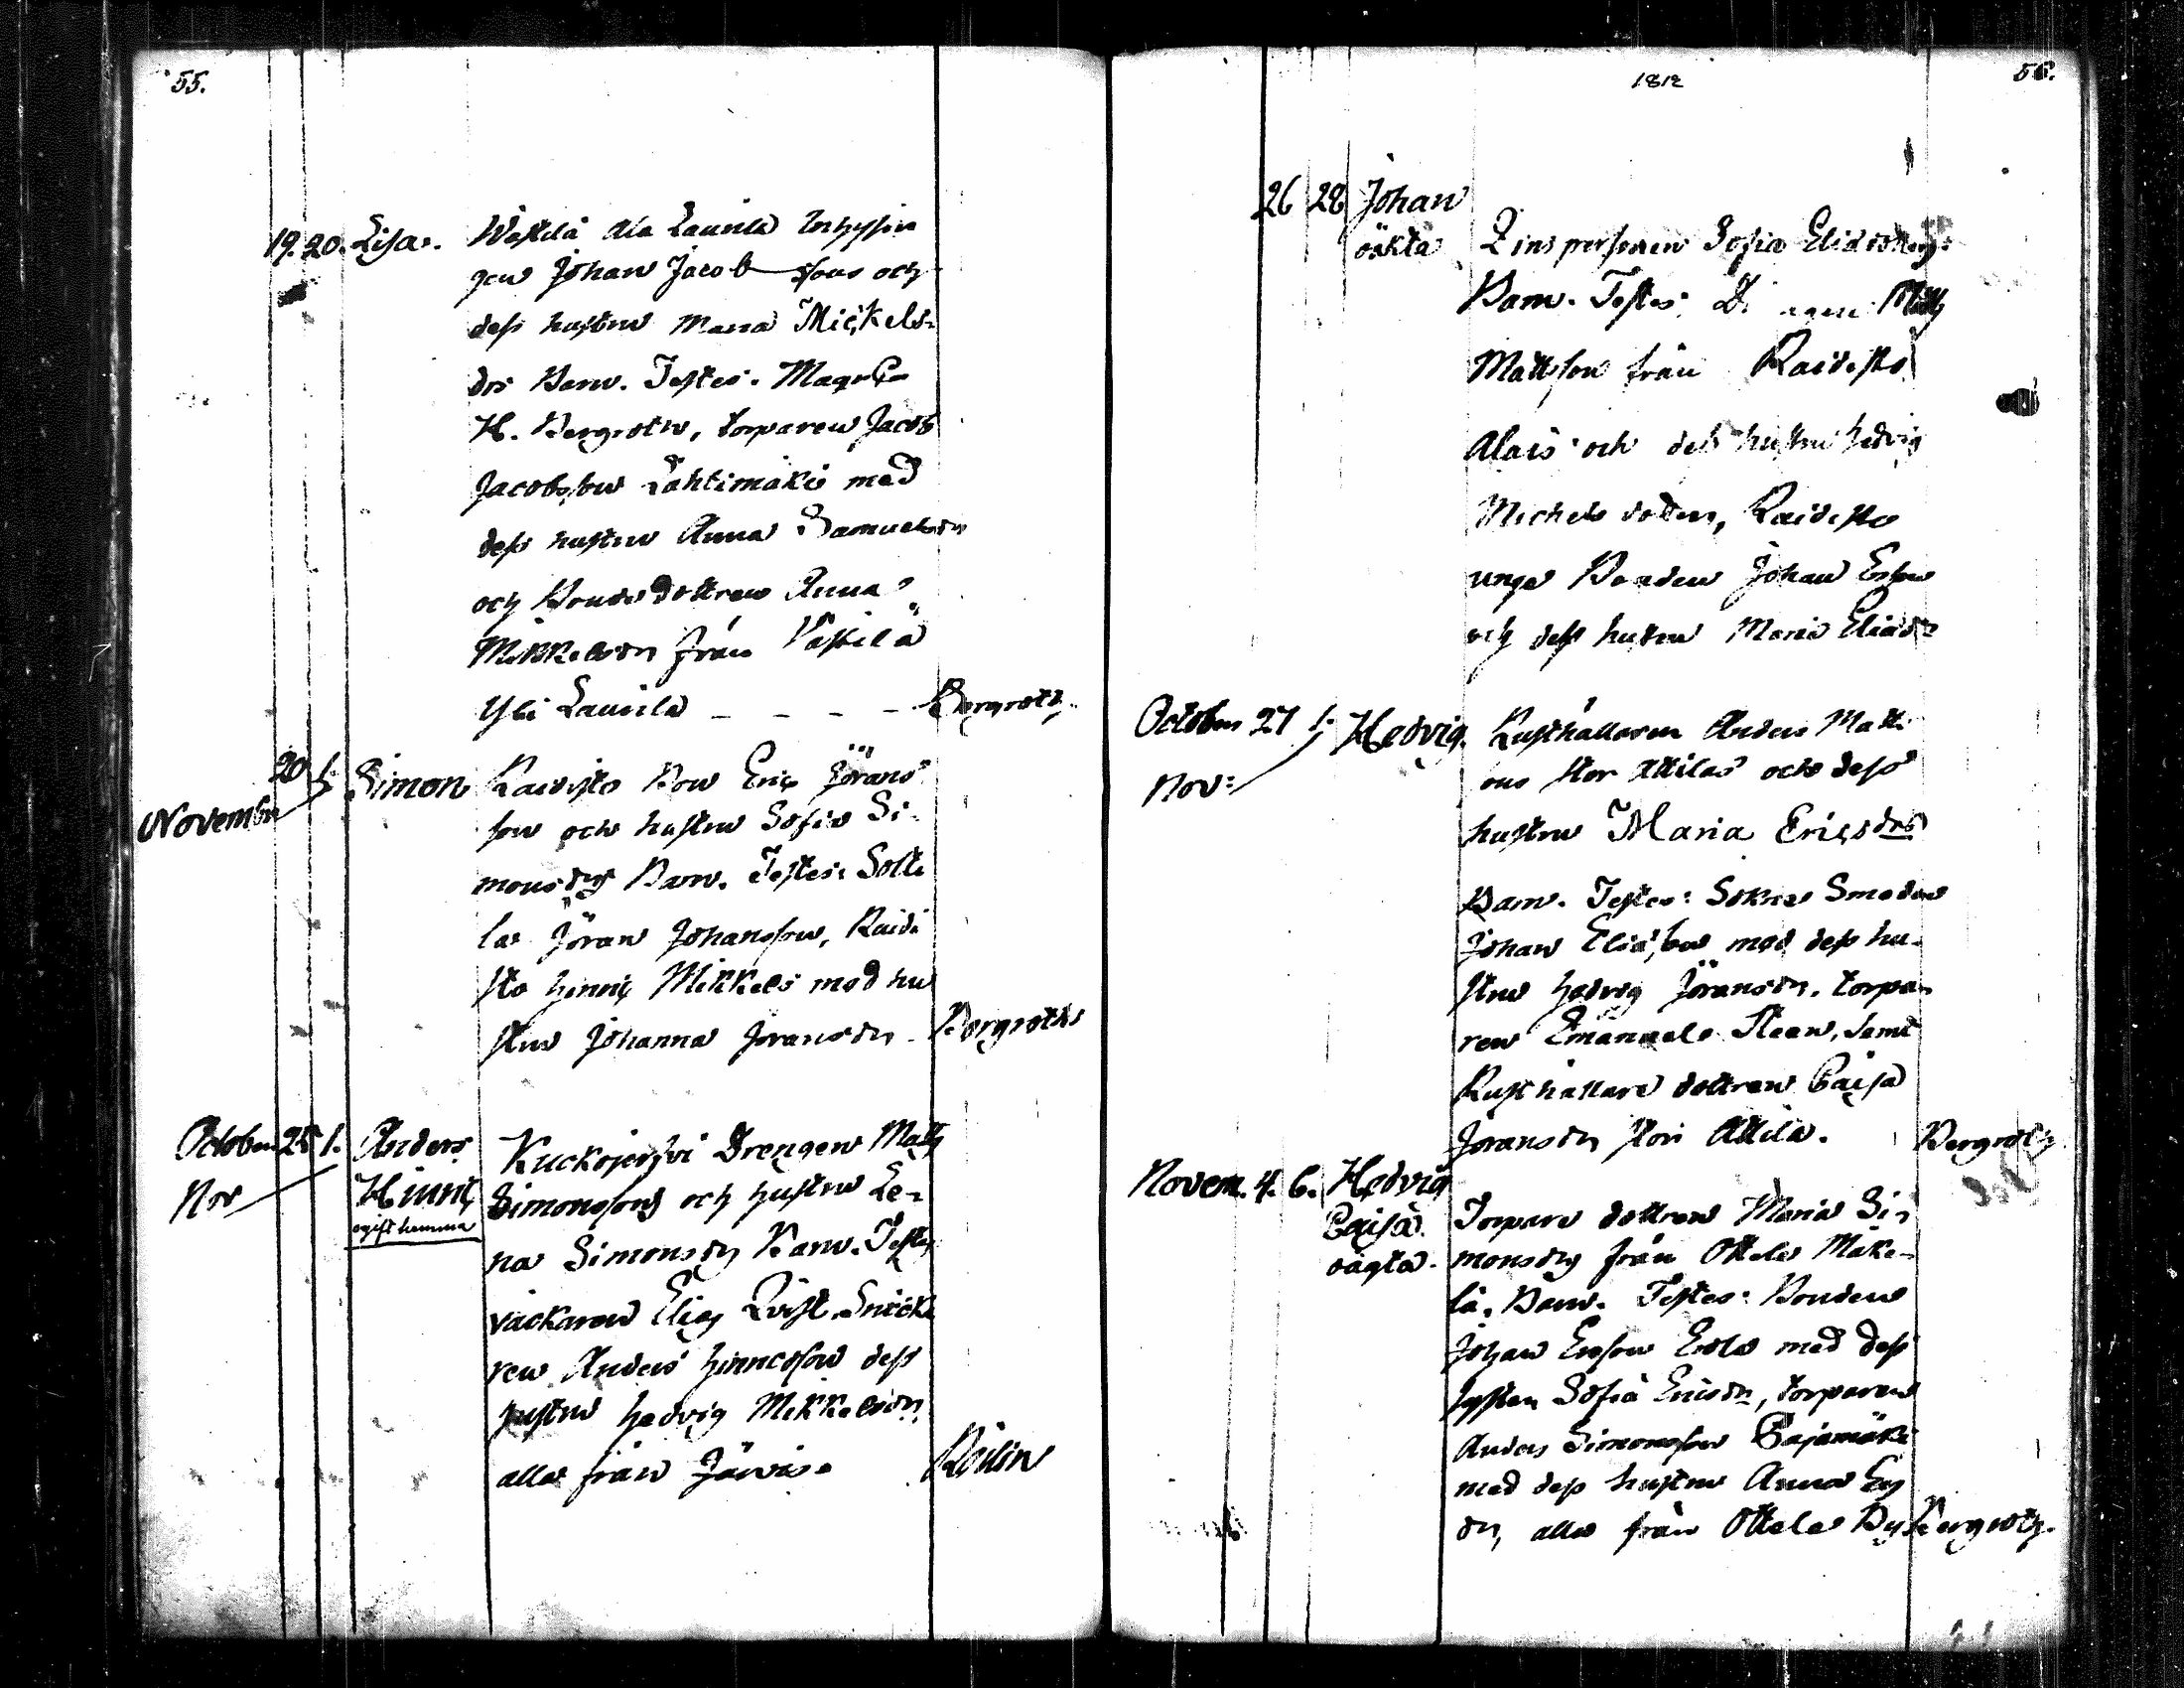 55.
19. 20. Lisa. Wäskilä Ala Laurila Inhysin
gen Johan Jacobsons och
dess hustru Maria Mickels
drs Barn. Testes. Mag
H. Bergroth, torparen Jacob
Jacobsson Lähtimäki med
dess hustru Anna Samuelsdr
och Bondedottren Anna
Mikkelsdr från Väskilä
Yli Laurila - - - - Bergroth.
20 1. Simon Raidisto Bon Eric Jörans
November son och hustru Sofia Si-
monsdrs Barn. Testes: Sotti
la Jöran Johansson, Raidi
sto Hinric Mikkels med hu
stru Johanna Joransdr - Bergroth
October 25 1. Anders Kuckojerfvi Drengen Matts
Nov Hinric Simonssons och hustru Le-
ogift hemma na Simonsdrs Barn. Testes
väckaren Elias Qvist, Snicka
ren Anders Hinricsson dess
hustru Hedvig Mikkelsdr,
alla från Järvis. Rölin
1812
56.
26 28 Johan
oäkta Sofia Eliædotters
Barn. Testes: Matts
Mattsson från Raidisto
Alais och dess hustru Hedvig
Michelsdotter, Raidisto
unge Bonden Johan Ersson
och dess hustru Maria Eliædr
October 27 1. Hedvig. Rusthållaren Anders Matts
Nov: ons Stor Attilas och dess
hustru Maria Ericsdrs
Barn. Testes: Sokne Smeden
Johan Eliæson med dess hu-
stru Hedvig Jöransdr. torpa-
ren Emanuel Steen, samt
Rusthållare dottren Caisa
Joransdr Stor Attila. Bergroth
Novem. 4. 6. Hedvig
Caisa Torpare dottren Maria Si-
oägta. monsdrs från Ottela Mäke-
lä, Barn. Testes: Bonden
Johan Ersson Erola med dess
syster Sofia Ericsdr, torparen
Anders Simonsson Pajamäki
med dess hustru Anna Ers
dr, alla från Ottela By Bergroth.